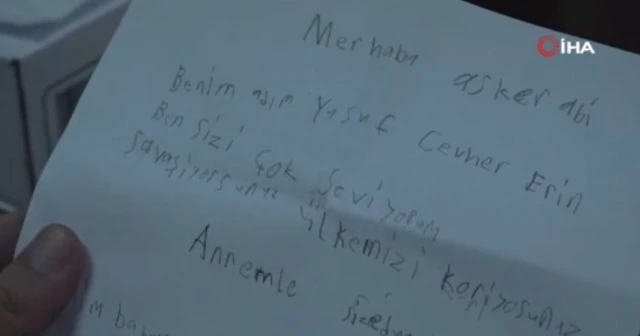 iHA
Merhaba asker abi
Benim adım Yusuf Cevher Erin
Ben sizi çok seviyorum
ülkemizi koriyosunuz
Annemle